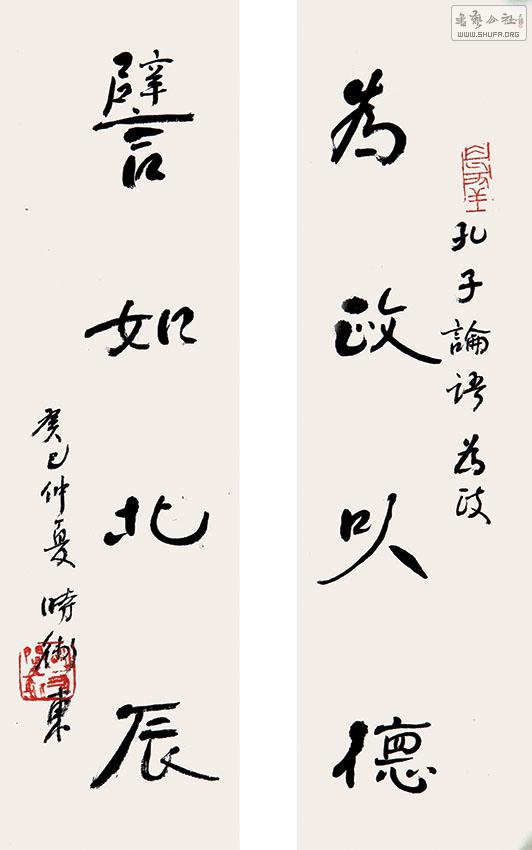 为政以德
孔子論语为政
譬如北辰
癸巳仲夏時衛東
書艺公社
WWW.SHUFA.ORG